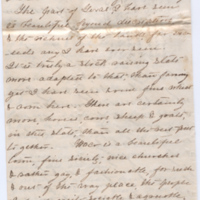 The part of Iowa I have seen
is beautiful,
& the richest of the lands far
exceeds any I have ever seen.
It is truly a stock raising state
more adapted to that than farming
yet I have seen some fine wheat
& corn here. There are certainly
more, horses, cows, sheep & goats,
in this state, than all the rest put
to gether. is a beautiful
town, fine society, nice churches
& rather gay, & fashionable, for such
& out of the way place, the people